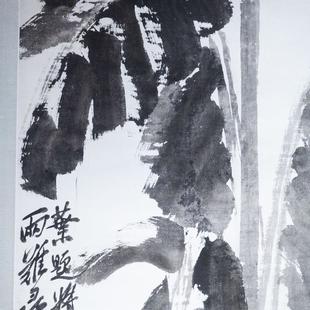 葉題將
雨難